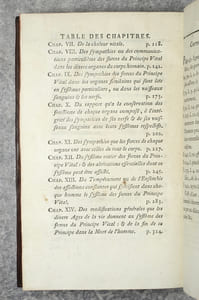 TABLE DES CHAPITRES.
CHAP. VII. De la chaleur vitale. p. 118.
CHAP. VIII. Des sympathies ou des communications
particulières des forces du Principe Vital
dans les divers organes du corps humain. p. 142.
CHAP. IX. Des sympathies des forces du Principe
Vital dans les organes similaires qui sont liés
en systêmes particuliers, au nombre des vaisseaux
sanguins & des nerfs. p. 175.
CHAP. X. Du rapport qu'a la conservation des
fonctions de chaque organe composé, à l'intégrité
des sympathies de ses nerfs & de ses vaisseaux
sanguins avec leurs systêmes respectifs.
p. 202.
CHAP. XI. Des sympathies que les forces de chaque
organe ont avec celles de tout le corps. p. 217.
CHAP. XII. Du systême entier des forces du Principe
Vital : & des altérations essentielles dont ce
systême peut être affecté. p. 245.
CHAP. XIII. Du Tempérament ou de l'Ensemble
des affections constantes qui spécifient dans chaque
homme le systême des forces du Principe
Vital. p. 283.
CHAP. XIV. Des modifications générales que les
divers Ages de la vie donnent au systême des
forces du Principe Vital ; & de la fin de ce
Principe dans la Mort de l'homme. p. 314.